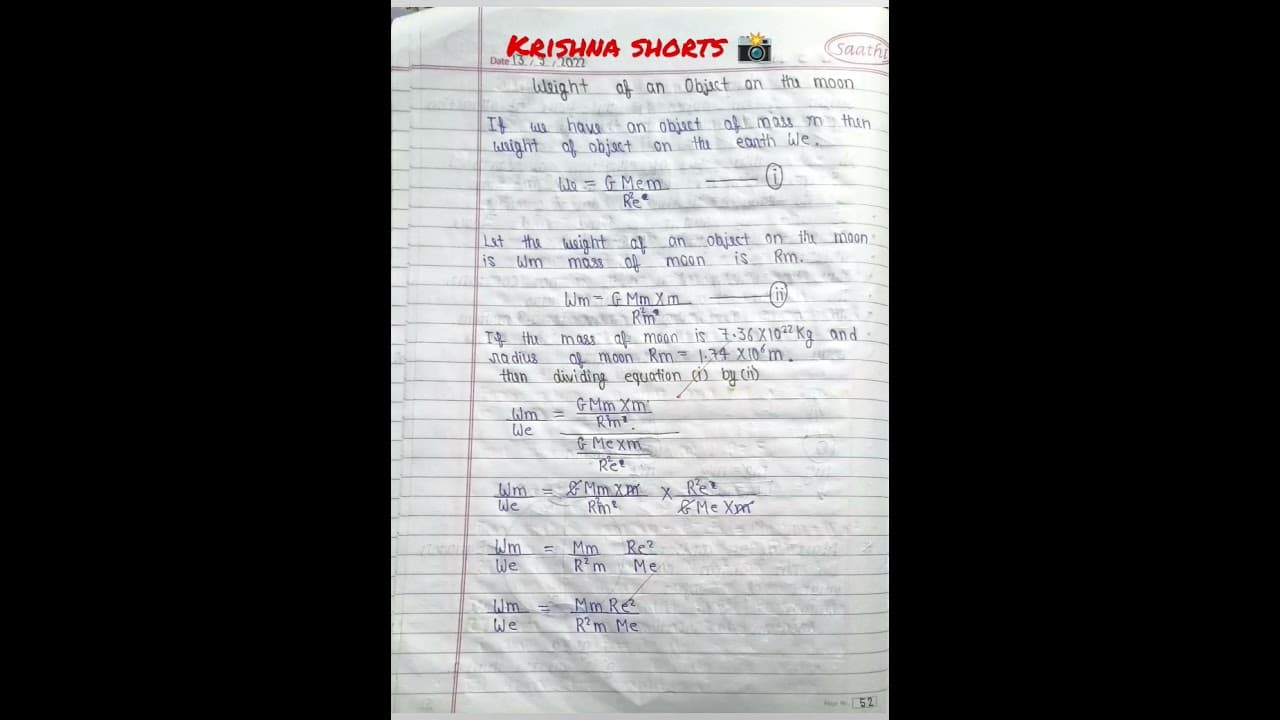 KRISHNA SHORTS
Saathi
Date 13/3/2022
Weight of an Object on the moon
If we have an object of mass m then
weight of object on the earth We.
We = G Mem ——— (i)
R²e²
Let the weight of an object on the moon
is Wm mass of moon is Rm.
Wm = G Mm X m ——— (ii)
R²m²
If the mass of moon is 7.36 X 10²² Kg and
radius of moon Rm = 1.74 X 10⁶ m.
then dividing equation (i) by (ii)
Wm/We = (G Mm X m / R²m²) / (G Me X m / R²e²)
Wm/We = G Mm X m / R²m² X R²e² / G Me X m
Wm/We = Mm/R²m Re²/Me
Wm/We = Mm Re² / R²m Me
Page No. 52